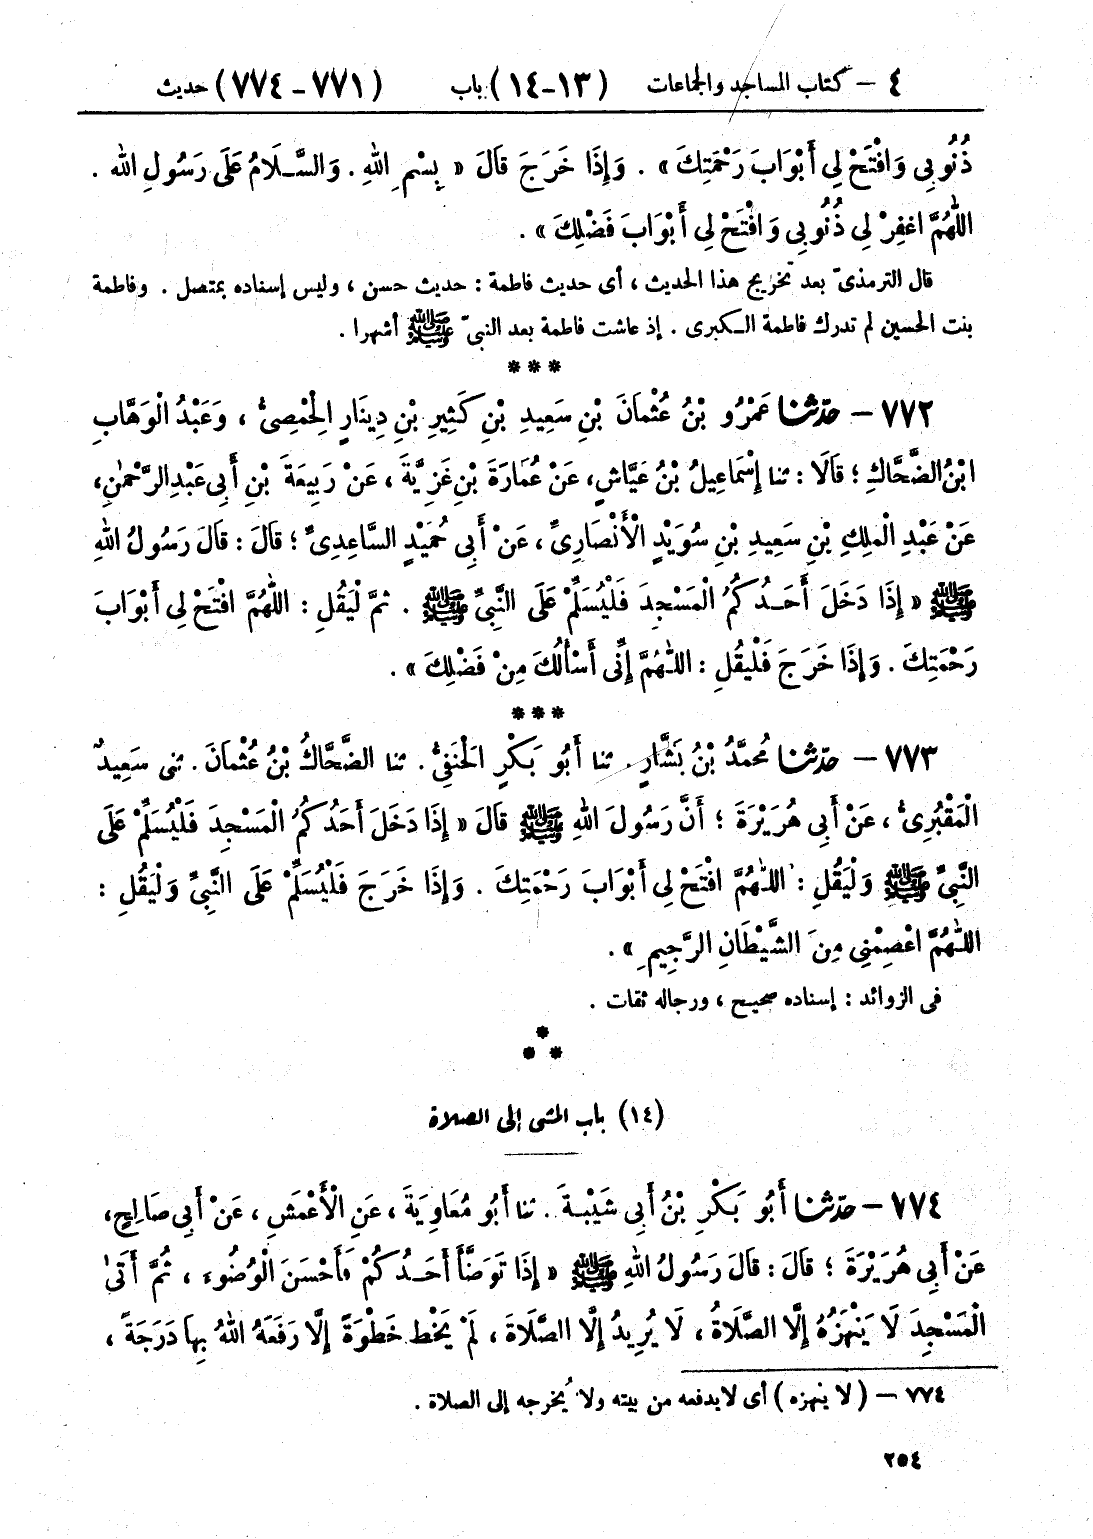 ٤ – كتاب المساجد والجماعات (١٣-١٤) باب (٧٧١-٧٧٤) حديث
ذُنُوبِي وَافْتَحْ لِي أَبْوَابَ رَحْمَتِكَ» . وَإِذَا خَرَجَ قَالَ « بِسْمِ اللهِ . وَالسَّلَامُ عَلَى رَسُولِ الله .
اللّٰهُمَّ اغفِرْ لِي ذُنُوبِي وَافْتَحْ لِي أَبْوَابَ فَضْلِكَ» .
قال الترمذىّ بعد تخريج هذا الحديث ، أى حديث فاطمة : حديث حسن ، وليس إسناده بمتصل . وفاطمة
بنت الحسين لم تدرك فاطمة الكبرى . إذ عاشت فاطمة بعد النبىّ ﷺ أشهرا .
***
٧٧٢ – حدّثنا عَمْرُو بْنُ عُثْمَانَ بْنِ سَعِيدِ بْنِ كَثِيرِ بْنِ دِينَارٍ الْحِمْصِىُّ ، وَعَبْدُ الْوَهَّابِ
ابْنُ الضَّحَّاكِ ؛ قَالَا : ثنا إِسْمَاعِيلُ بْنُ عَيَّاشٍ، عَنْ عُمَارَةَ بْنِ غَزِيَّةَ ، عَنْ رَبِيعَةَ بْنِ أَبِى عَبْدِ الرَّحْمٰنِ،
عَنْ عَبْدِ الْمَلِكِ بْنِ سَعِيدِ بْنِ سُوَيْدٍ الْأَنْصَارِىِّ ، عَنْ أَبِي حُمَيْدٍ السَّاعِدِىِّ ؛ قَالَ : قَالَ رَسُولُ اللهِ
ﷺ « إِذَا دَخَلَ أَحَدُكُمُ الْمَسْجِدَ فَلْيُسَلِّمْ عَلَى النَّبِىِّ ﷺ . ثُمَّ لْيَقُلِ : اللّٰهُمَّ افْتَحْ لِى أَبْوَابَ
رَحْمَتِكَ . وَإِذَا خَرَجَ فَلْيَقُلِ : اللّٰهُمَّ إِنِّى أَسْأَلُكَ مِنْ فَضْلِكَ » .
***
٧٧٣ – حدّثنا مُحَمَّدُ بْنُ بَشَّارٍ . ثنا أَبُو بَكْرٍ الْحَنَفِىُّ . ثنا الضَّحَّاكُ بْنُ عُثْمَانَ . ثنى سَعِيدٌ
الْمَقْبُرِىُّ ، عَنْ أَبِي هُرَيْرَةَ ؛ أَنَّ رَسُولَ اللهِ ﷺ قَالَ « إِذَا دَخَلَ أَحَدُكُمُ الْمَسْجِدَ فَلْيُسَلِّمْ عَلَى
النَّبِىِّ ﷺ وَلْيَقُلِ : اللّٰهُمَّ افْتَحْ لِى أَبْوَابَ رَحْمَتِكَ . وَإِذَا خَرَجَ فَلْيُسَلِّمْ عَلَى النَّبِىِّ وَلْيَقُلِ :
اللّٰهُمَّ اعْصِمْنِى مِنَ الشَّيْطَانِ الرَّجِيمِ » .
فى الزوائد : إسناده صحيح ، ورجاله ثقات .
*
* *
(١٤) باب المشى إلى الصلاة
٧٧٤ – حدّثنا أَبُو بَكْرِ بْنُ أَبِى شَيْبَةَ . ثنا أَبُو مُعَاوِيَةَ ، عَنِ الْأَعْمَشِ ، عَنْ أَبِي صَالِحٍ،
عَنْ أَبِي هُرَيْرَةَ ؛ قَالَ : قَالَ رَسُولُ اللهِ ﷺ « إِذَا تَوَضَّأَ أَحَدُكُمْ فَأَحْسَنَ الْوُضُوءَ ، ثُمَّ أَتَى
الْمَسْجِدَ لَا يَنْهَزُهُ إِلَّا الصَّلَاةُ ، لَا يُرِيدُ إِلَّا الصَّلَاةَ ، لَمْ يَخْطُ خَطْوَةً إِلَّا رَفَعَهُ اللهُ بِهَا دَرَجَةً ،
٧٧٤ – ( لا ينهزه ) أى لا يدفعه من بيته ولا يُخرجه إلى الصلاة .
٢٥٤